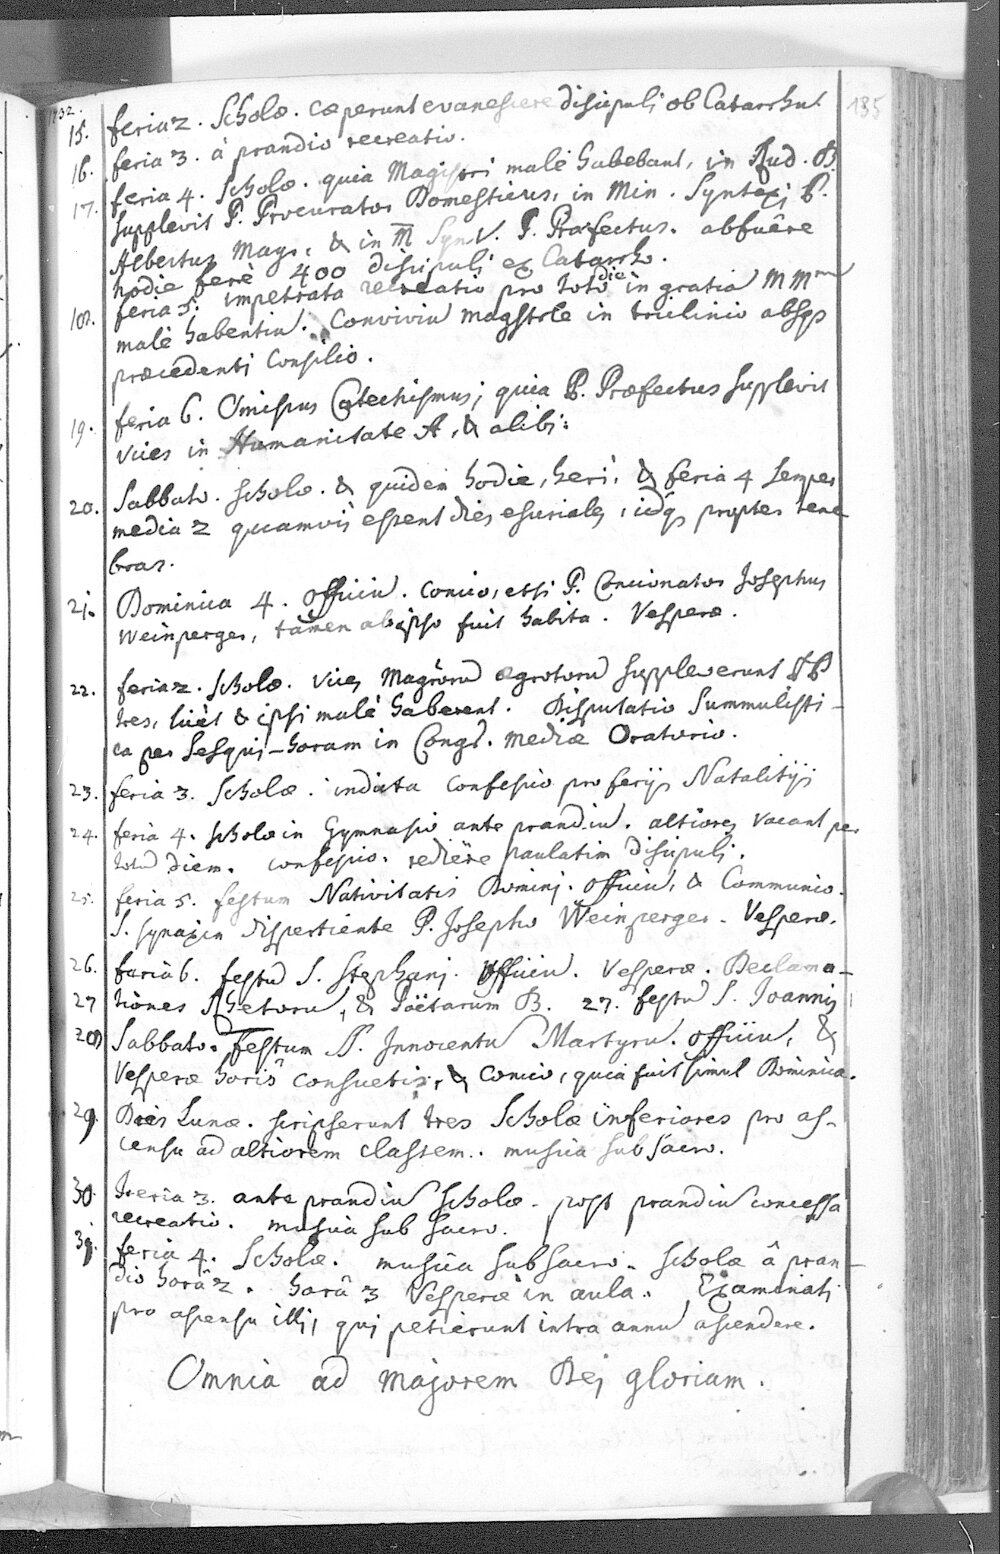 1732.
185
15. feria 2. Scholæ. cœperunt evanescere discipuli ob Catarrhu.
16. feria 3. à prandio recreatio.
17. feria 4. Scholæ. quia Magistri malè habebant, in Rud. P.
supplevit P. Procurator Domesticus, in Min. Syntaxi P.
Albertus Mayr, & in M Synt. P. Præfectus. abfuêre
hodie ferè 400 discipuli ex Catarrho.
18. feria 5. impetrata recreatio pro toto die in gratiā MMrum
malè habentiū. Conviviū magstrle in triclinio absqs
præcedenti Consilio.
19. feria 6. Omissus Catechismus, quia P. Præfectus supplevit
vices in Humanitate A, & alibi.
20. Sabbato. Scholæ. & quidem hodie, heri, & feria 4 semper
media 2 quamvis essent dies esuriales, idqs propter tene
bras.
21. Dominica 4. Officiū. Concio, etsi P. Concionator Josephus
Weinperger, tamen ab ipso fuit habita. Vesperæ.
22. feria 2. Scholæ. vices Magrorū ægrotorū suppleverunt PP
tres, licèt & ipsi malè haberent. Disputatio Summulisti-
ca per sesqui-horam in Congr. mediæ Oratorio.
23. feria 3. Scholæ. indicta confessio pro ferijs Natalitijs
24. feria 4. scholæ in Gymnasio ante prandiū. altiores vacant per
totū diem. confessio. rediêre paulatim discipuli.
25. feria 5. festum Nativitatis Domini. officiū, & Communio.
S. synaxin dispertiente P. Josepho Weinperger. Vesperæ.
26. feria 6. festū S. Stephani. Officiū. Vesperæ. Declama-
27 tiones Rhetorū, & Poëtarum B. 27. festū S. Joannis
28 Sabbato. Festum SS. Innocentū Martyrū. officiū, &
Vesperæ horis consuetis, & Concio, quia fuit simul Dominica.
29. Dies Lunæ. scripserunt tres Scholæ inferiores pro as-
censu ad altiorem classem. musica sub sacro.
30. Feria 3. ante prandiū Scholæ. post prandiū concessa
recreatio. musica sub sacro.
31. feria 4. Scholæ. musica sub sacro. scholæ â pran-
dio horâ 2. horâ 3 Vesperæ in aula. Examinati
pro ascensu illi, qui petierunt intra annū ascendere.
Omnia ad majorem Dei gloriam.